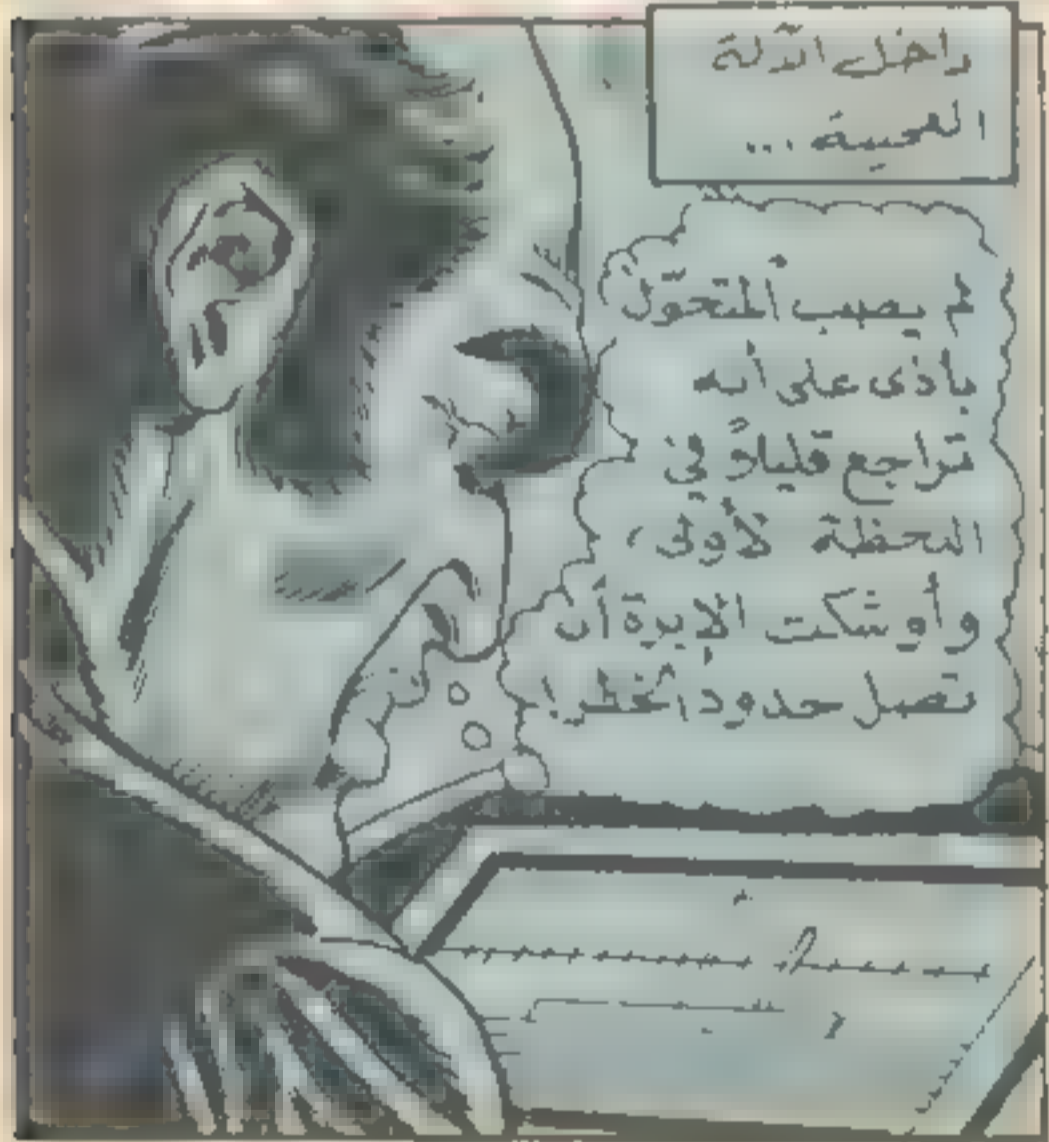 داخل الآلة
العجيبة ...
لم يصب المتحوّل
بأذى على أنه
تراجع قليلاً في
اللحظة لأولى،
وأوشكت الإبرة أن
تصل حدود الخطر!